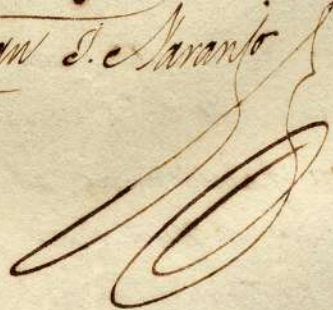 an J. Naranjo